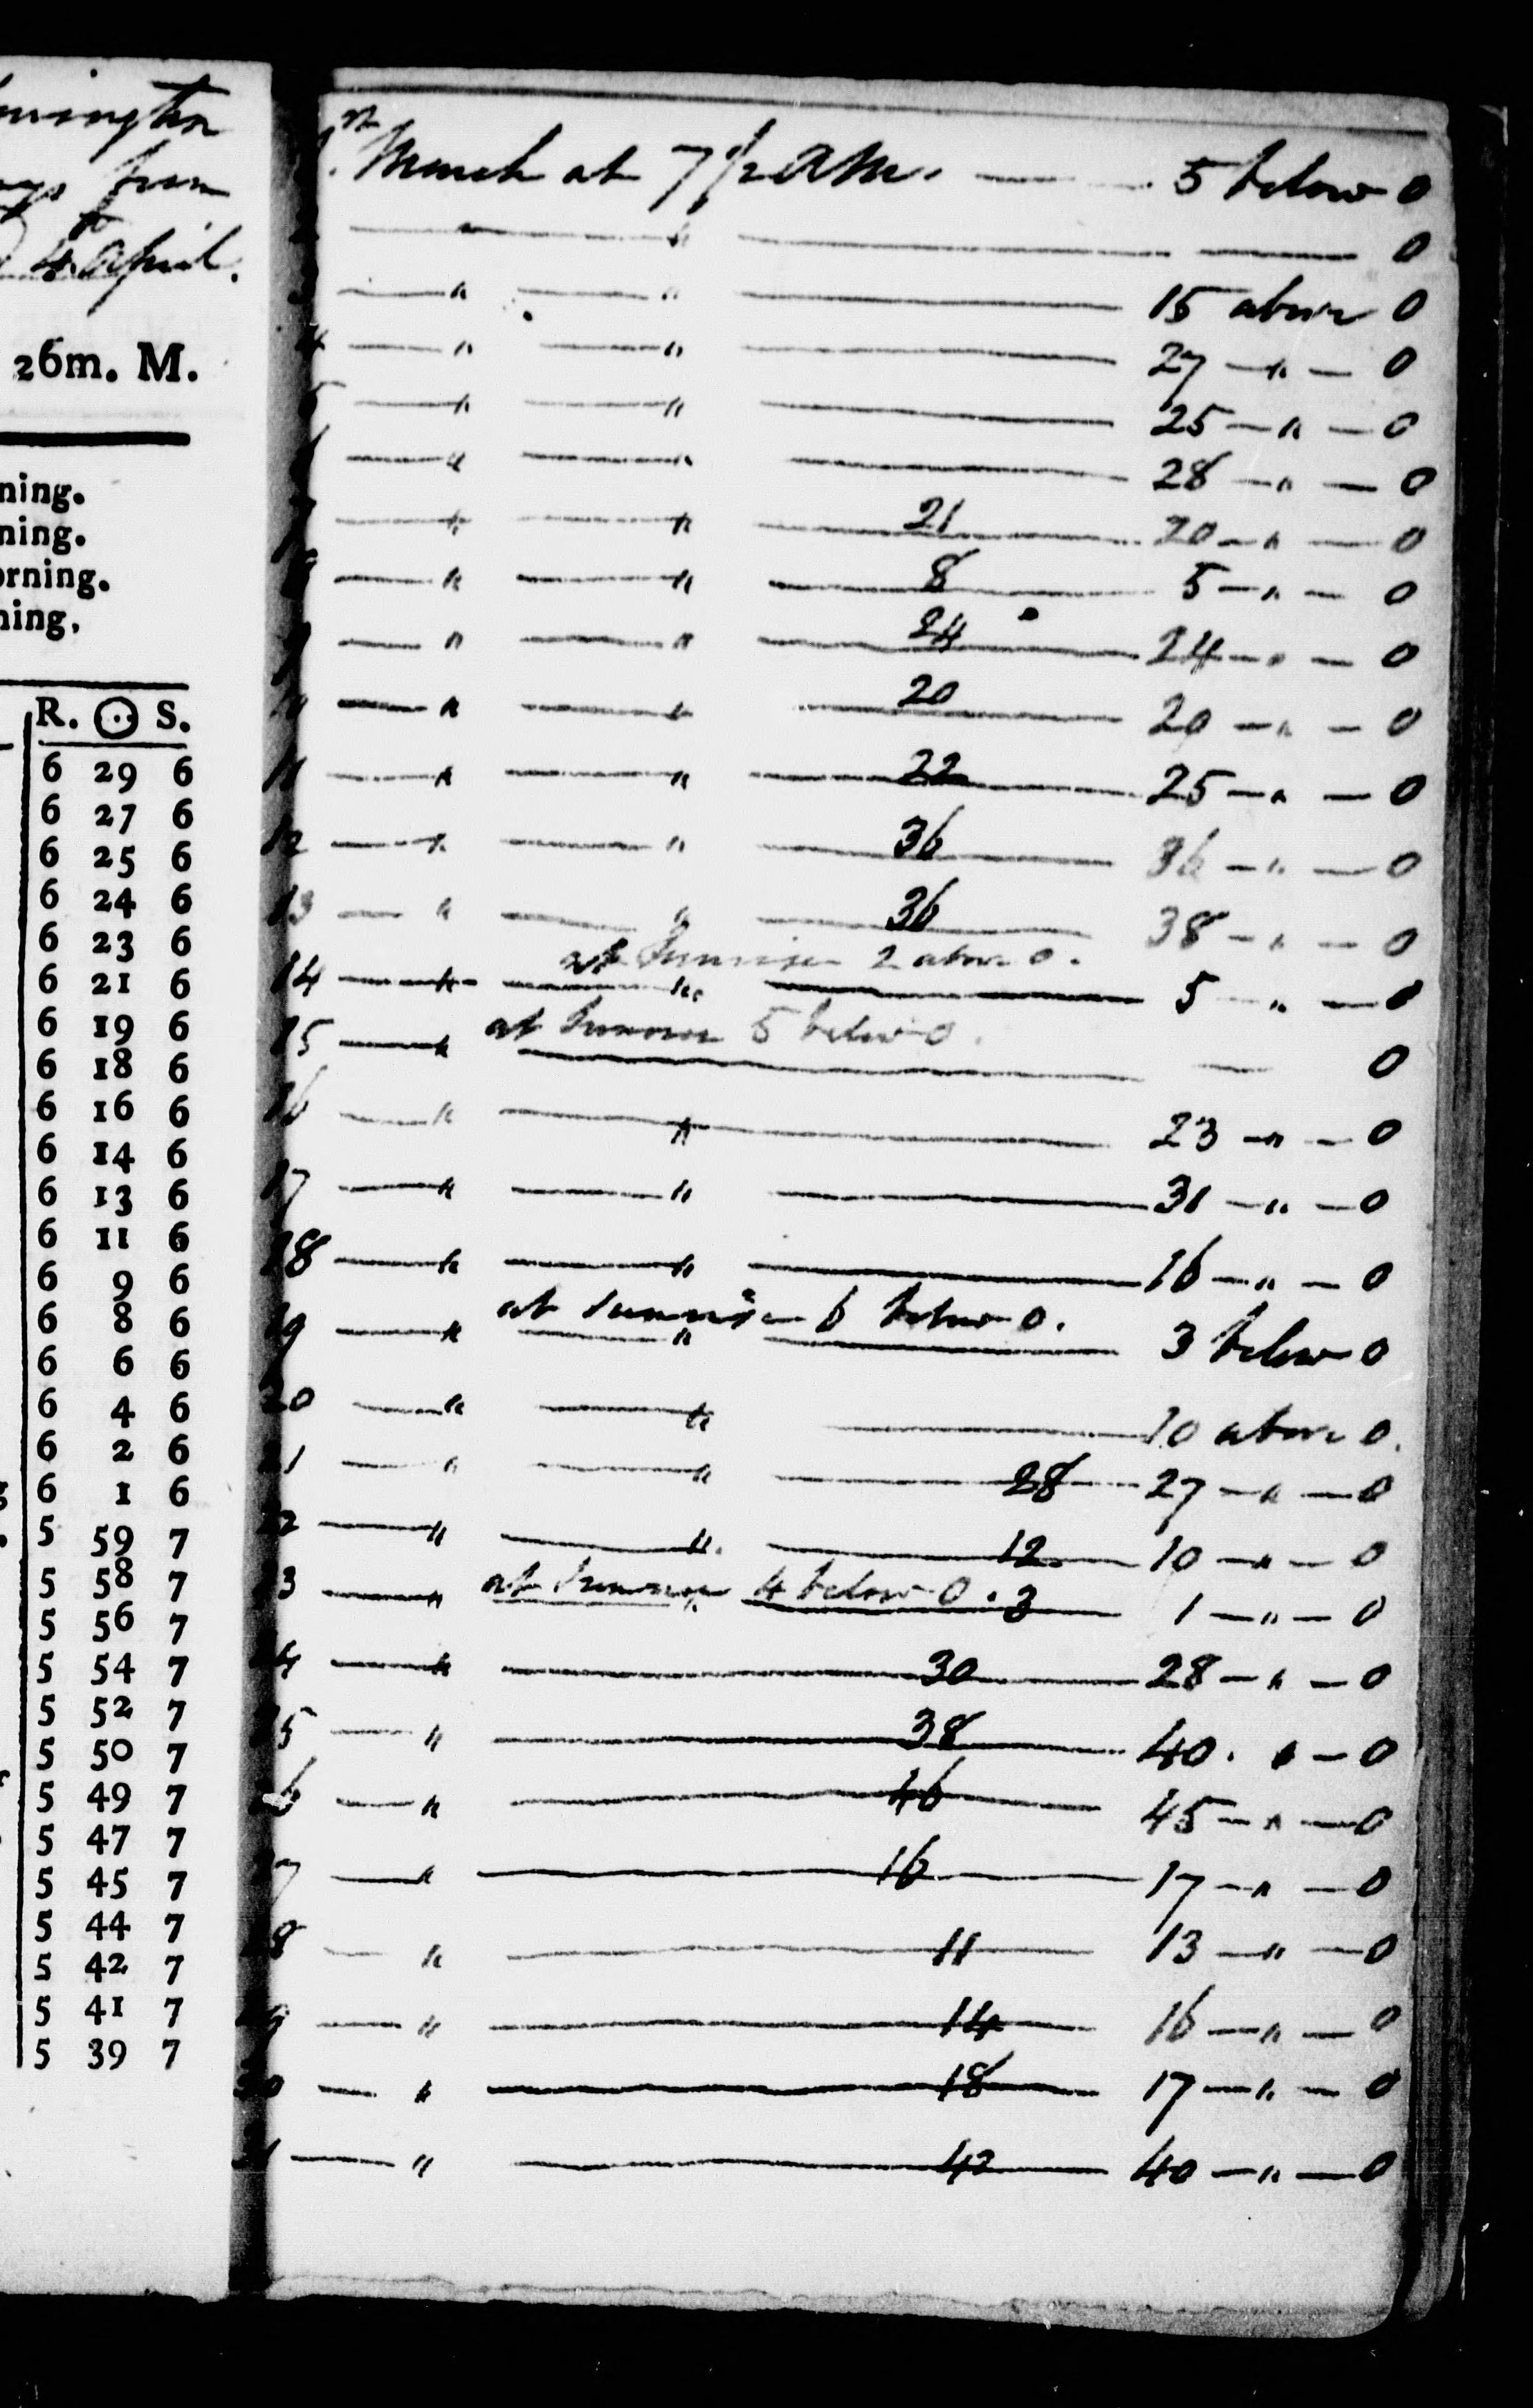 nnington
from
to
4 April.
26m. M.
ning.
ning.
orning.
ning.
R. ☉ S.
6 29 6
6 27 6
6 25 6
6 24 6
6 23 6
6 21 6
6 19 6
6 18 6
6 16 6
6 14 6
6 13 6
6 11 6
6 9 6
6 8 6
6 6 6
6 4 6
6 2 6
6 1 6
5 59 7
5 58 7
5 56 7
5 54 7
5 52 7
5 50 7
5 49 7
5 47 7
5 45 7
5 44 7
5 42 7
5 41 7
5 39 7
1st March at 7 1/2 AM. — 5 below 0
— " — " — — 0
— " — " — 15 above 0
4 — " — " — 27 — " — 0
5 — " — " — 25 — " — 0
— " — " — 28 — " — 0
7 — " — " — 21 — 20 — " — 0
8 — " — " — 8 — 5 — " — 0
9 — " — " — 24 — 24 — " — 0
10 — " — " — 20 — 20 — " — 0
11 — " — " — 22 — 25 — " — 0
12 — " — " — 36 — 36 — " — 0
13 — " — " — 36 — 38 — " — 0
at Sunrise 2 above 0.
14 — " — " — 5 — " — 0
at Sunrise 5 below 0.
15 — " — — 0
16 — " — " — 23 — " — 0
17 — " — " — 31 — " — 0
18 — " — " — 16 — " — 0
at sunrise 6 below 0.
19 — " — " — 3 below 0
20 — " — " — 10 above 0.
21 — " — " — 28 — 27 — " — 0
22 — " — " — 12 — 10 — " — 0
at Sunrise 4 below 0.
23 — " — " — 3 — 1 — " — 0
24 — " — 30 — 28 — " — 0
25 — " — 38 — 40 . " — 0
26 — " — 46 — 45 — " — 0
27 — " — 16 — 17 — " — 0
28 — " — 11 — 13 — " — 0
29 — " — 14 — 16 — " — 0
30 — " — 18 — 17 — " — 0
31 — " — 42 — 40 — " — 0